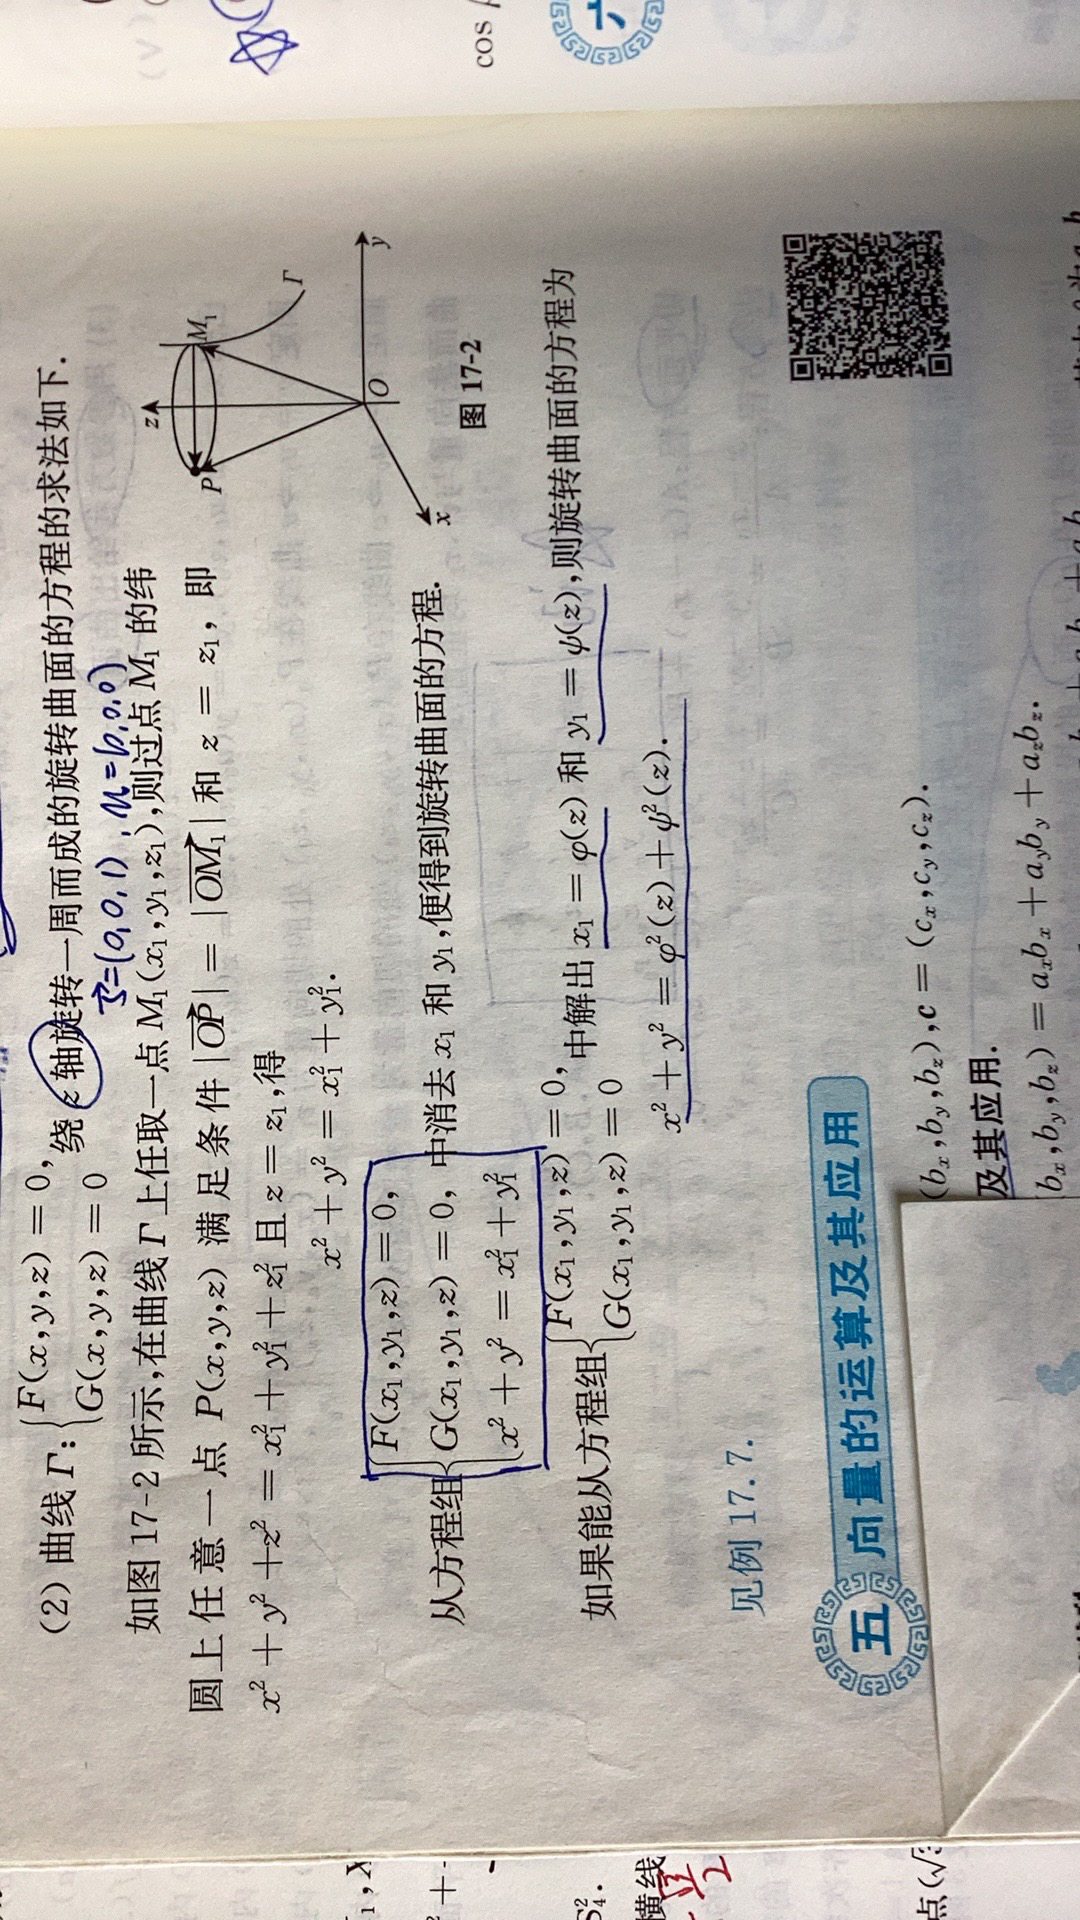 cos
六
(2) 曲线 Γ: { F(x,y,z)=0, G(x,y,z)=0 绕 z 轴旋转一周而成的旋转曲面的方程的求法如下.
=(0,0,1),
如图 17-2 所示,在曲线 Γ 上任取一点 M₁(x₁,y₁,z₁),则过点 M₁ 的纬
圆上任意一点 P(x,y,z) 满足条件 |OP|=|OM₁| 和 z=z₁, 即
x²+y²+z²=x₁²+y₁²+z₁² 且 z=z₁,得
x²+y²=x₁²+y₁².
z
M₁
Γ
P
O
y
x
图 17-2
从方程组 { F(x₁,y₁,z)=0, G(x₁,y₁,z)=0, x²+y²=x₁²+y₁² 中消去 x₁ 和 y₁,便得到旋转曲面的方程.
如果能从方程组 { F(x₁,y₁,z)=0, G(x₁,y₁,z)=0 中解出 x₁=φ(z) 和 y₁=ψ(z),则旋转曲面的方程为
x²+y²=φ²(z)+ψ²(z).
见例 17.7.
五 向量的运算及其应用
(bₓ,b_y,b_z),c=(cₓ,c_y,c_z).
及其应用.
bₓ,b_y,b_z)=aₓbₓ+a_yb_y+a_zb_z.
横线
点(√3